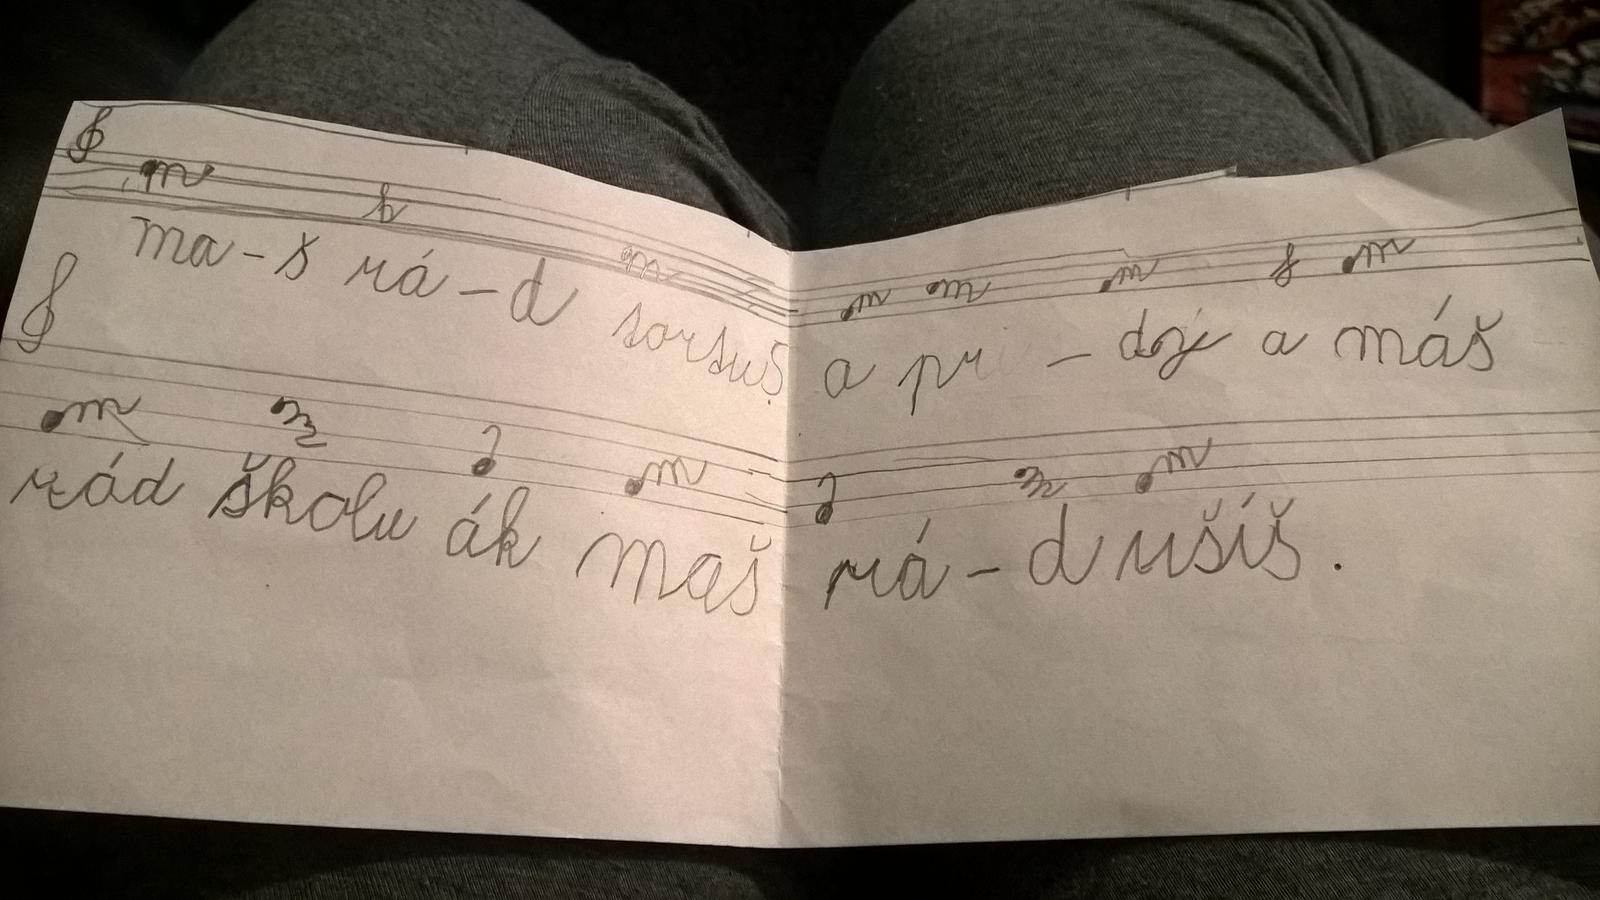 ma-s rá-d sorsuš a pri - doj a máš
rád školu ák maš rá-d ušíš.